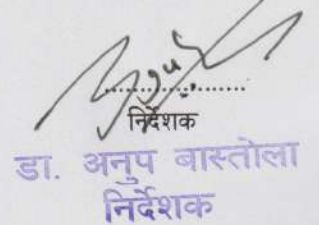 ....................
निर्देशक
डा. अनुप बास्तोला
निर्देशक